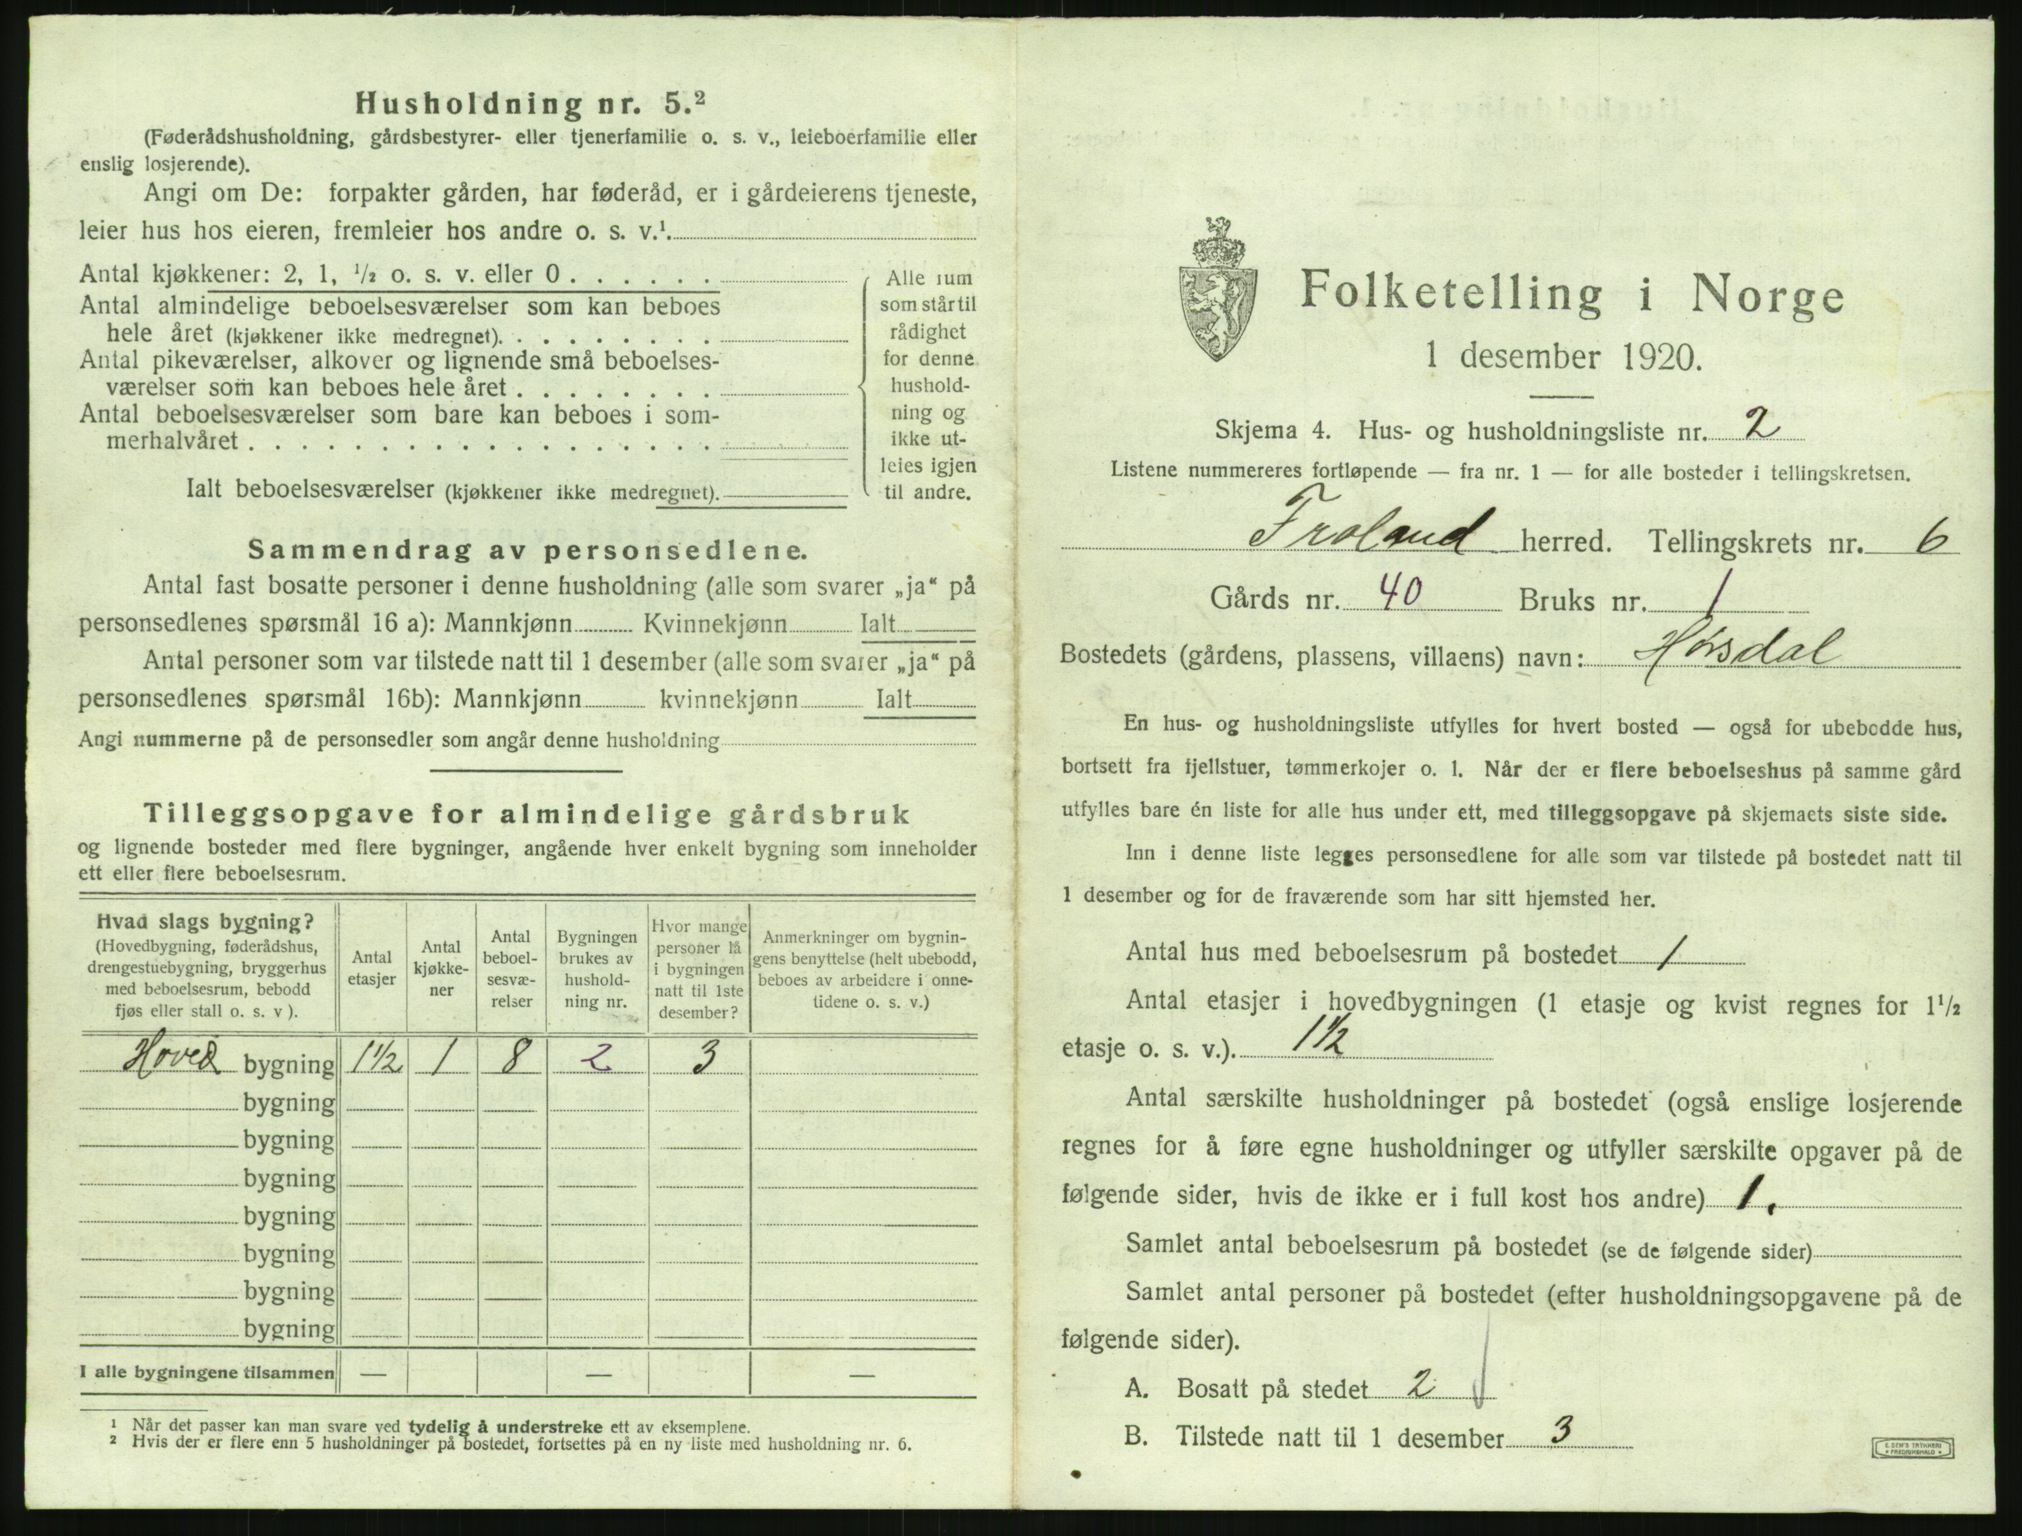 Husholdning nr. 5.²
(Føderådshusholdning, gårdsbestyrer- eller tjenerfamilie o. s. v., leieboerfamilie eller
enslig losjerende).
Angi om De: forpakter gården, har føderåd, er i gårdeierens tjeneste,
leier hus hos eieren, fremleier hos andre o. s. v.¹.
Antal kjøkkener: 2, 1, ½ o. s. v. eller 0
Antal almindelige beboelsesværelser som kan beboes
hele året (kjøkkener ikke medregnet).
Antal pikeværelser, alkover og lignende små beboelses-
værelser som kan beboes hele året
Antal beboelsesværelser som bare kan beboes i som-
merhalvåret
Ialt beboelsesværelser (kjøkkener ikke medregnet).
Alle rum
som står til
rådighet
for denne
hushold-
ning og
ikke ut-
leies igjen
til andre.
Sammendrag av personsedlene.
Antal fast bosatte personer i denne husholdning (alle som svarer „ja“ på
personsedlenes spørsmål 16 a): Mannkjønn Kvinnekjønn Ialt
Antal personer som var tilstede natt til 1 desember (alle som svarer „ja“ på
personsedlenes spørsmål 16b): Mannkjønn kvinnekjønn Ialt
Angi nummerne på de personsedler som angår denne husholdning
Tilleggsopgave for almindelige gårdsbruk
og lignende bosteder med flere bygninger, angående hver enkelt bygning som inneholder
ett eller flere beboelsesrum.
Hvad slags bygning?
(Hovedbygning, føderådshus,
drengestuebygning, bryggerhus
med beboelsesrum, bebodd
fjøs eller stall o. s. v ).
Antal
etasjer
Antal
kjøkke-
ner
Antal
beboel-
sesvæ-
relser
Bygningen
brukes av
hushold-
ning nr.
Hvor mange
personer lå
i bygningen
natt til 1ste
desember?
Anmerkninger om bygnin-
gens benyttelse (helt ubebodd,
beboes av arbeidere i onne-
tidene o. s. v.)
Hoved bygning 1½ 1 8 2 3
bygning
bygning
bygning
bygning
bygning
bygning
bygning
I alle bygningene tilsammen — — —
¹ Når det passer kan man svare ved tydelig å understreke ett av eksemplene.
² Hvis der er flere enn 5 husholdninger på bostedet, fortsettes på en ny liste med husholdning nr. 6.
Folketelling i Norge
1 desember 1920.
Skjema 4. Hus- og husholdningsliste nr. 2
Listene nummereres fortløpende — fra nr. 1 — for alle bosteder i tellingskretsen.
Froland herred. Tellingskrets nr. 6
Gårds nr. 40 Bruks nr. 1
Bostedets (gårdens, plassens, villaens) navn: Hørsdal
En hus- og husholdningsliste utfylles for hvert bosted — også for ubebodde hus,
bortsett fra fjellstuer, tømmerkojer o. l. Når der er flere beboelseshus på samme gård
utfylles bare én liste for alle hus under ett, med tilleggsopgave på skjemaets siste side.
Inn i denne liste legges personsedlene for alle som var tilstede på bostedet natt til
1 desember og for de fraværende som har sitt hjemsted her.
Antal hus med beboelsesrum på bostedet 1
Antal etasjer i hovedbygningen (1 etasje og kvist regnes for 1½
etasje o. s. v.). 1½
Antal særskilte husholdninger på bostedet (også enslige losjerende
regnes for å føre egne husholdninger og utfyller særskilte opgaver på de
følgende sider, hvis de ikke er i full kost hos andre) 1.
Samlet antal beboelsesrum på bostedet (se de følgende sider)
Samlet antal personer på bostedet (efter husholdningsopgavene på de
følgende sider).
A. Bosatt på stedet 2
B. Tilstede natt til 1 desember 3